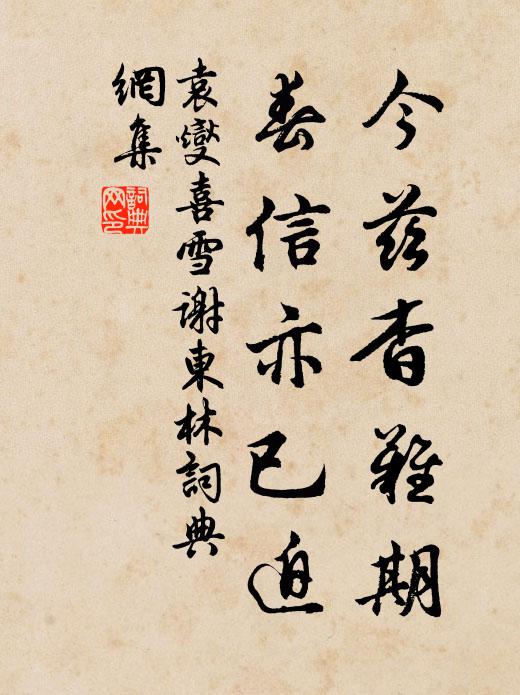 今兹杳難期
春信亦已迫
袁燮喜雪謝東林詞典
網集
詞典
网印